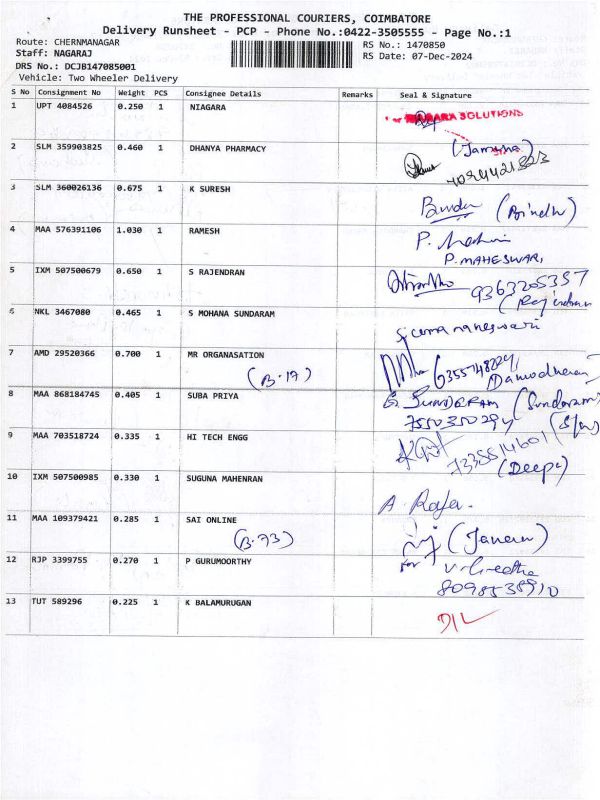 THE PROFESSIONAL COURIERS, COIMBATORE
Delivery Runsheet - PCP - Phone No.:0422-3505555 - Page No.:1
Route: CHERNMANAGAR
Staff: NAGARAJ
DRS No.: DCJB147085001
Vehicle: Two Wheeler Delivery
RS No.: 1470850
RS Date: 07-Dec-2024
S No Consignment No Weight PCS Consignee Details Remarks Seal & Signature
1 UPT 4084526 0.250 1 NIAGARA SOLUTIONS
2 SLM 359903825 0.460 1 DHANYA PHARMACY (Jamuna)
3 SLM 360026136 0.675 1 K SURESH Bindu (Bindhu)
4 MAA 576391106 1.030 1 RAMESH
P. MAHESWARI
5 IXM 507500679 0.650 1 S RAJENDRAN 9363205357
(Rajendran
6 NKL 3467080 0.465 1 S MOHANA SUNDARAM
7 AMD 29520366 0.700 1 MR ORGANASATION
(B-17) Damodharan)
8 MAA 868184745 0.405 1 SUBA PRIYA G. SUNDERAM (Sundaram)
9 MAA 703518724 0.335 1 HI TECH ENGG 7335514601
(Deepa)
10 IXM 507500985 0.330 1 SUGUNA MAHENRAN A. Raja.
11 MAA 109379421 0.285 1 SAI ONLINE
(B-73)
12 RJP 3399755 0.270 1 P GURUMOORTHY for V. Greetha
8098538910
13 TUT 589296 0.225 1 K BALAMURUGAN D/L